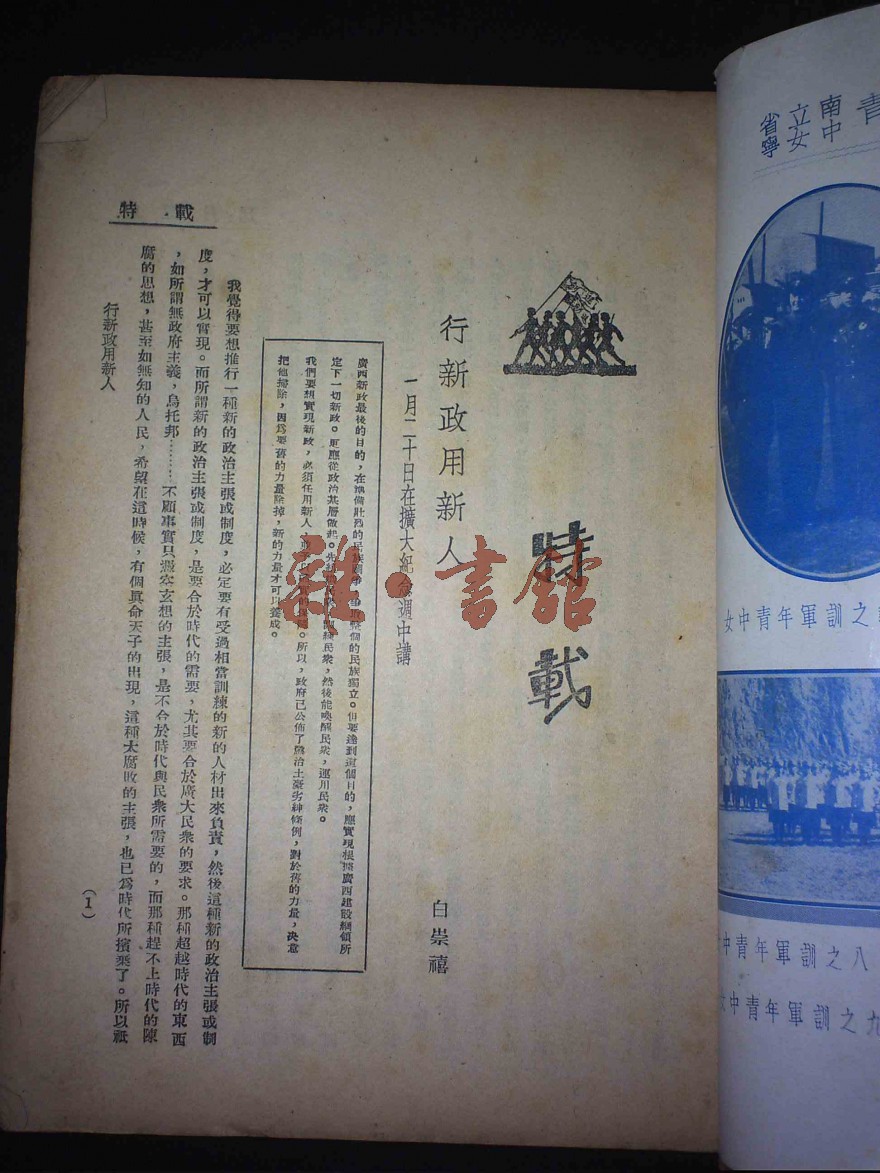 特載
行新政用新人
一月二十日在擴大紀念週中講
白崇禧
廣西新政最後的目的，在準備壯烈的民族 整個的民族獨立。但要達到這個目的，應實現根據廣西建設綱領所
定下一切新政。更應從政治基層做起。先 民衆，然後能喚醒民衆，運用民衆。
我們要想實現新政，必須任用新人 所以，政府已公佈了懲治土豪劣紳條例，對於舊的力量，決意
把他掃除，因爲要舊的力量除掉，新的力量才可以養成。
我覺得要想推行一種新的政治主張或制度，必定要有受過相當訓練的新的人材出來負責，然後這種新的政治主張或制
度，才可以實現。而所謂新的政治主張或制度，是要合於時代的需要，尤其要合於廣大民衆的要求。那種超越時代的東西
，如所謂無政府主義，烏托邦………不顧事實只憑空玄想的主張，是不合於時代與民衆所需要的，而那種趕不上時代的陳
腐的思想，甚至如無知的人民，希望在這時候，有個眞命天子的出現，這種太腐敗的主張，也已爲時代所擯棄了。所以祇
行新政用新人
特載
（1）
雜·書館
省立南
寧女中
青
女中青年軍訓之
中青年軍訓之八
女中青年軍訓之九